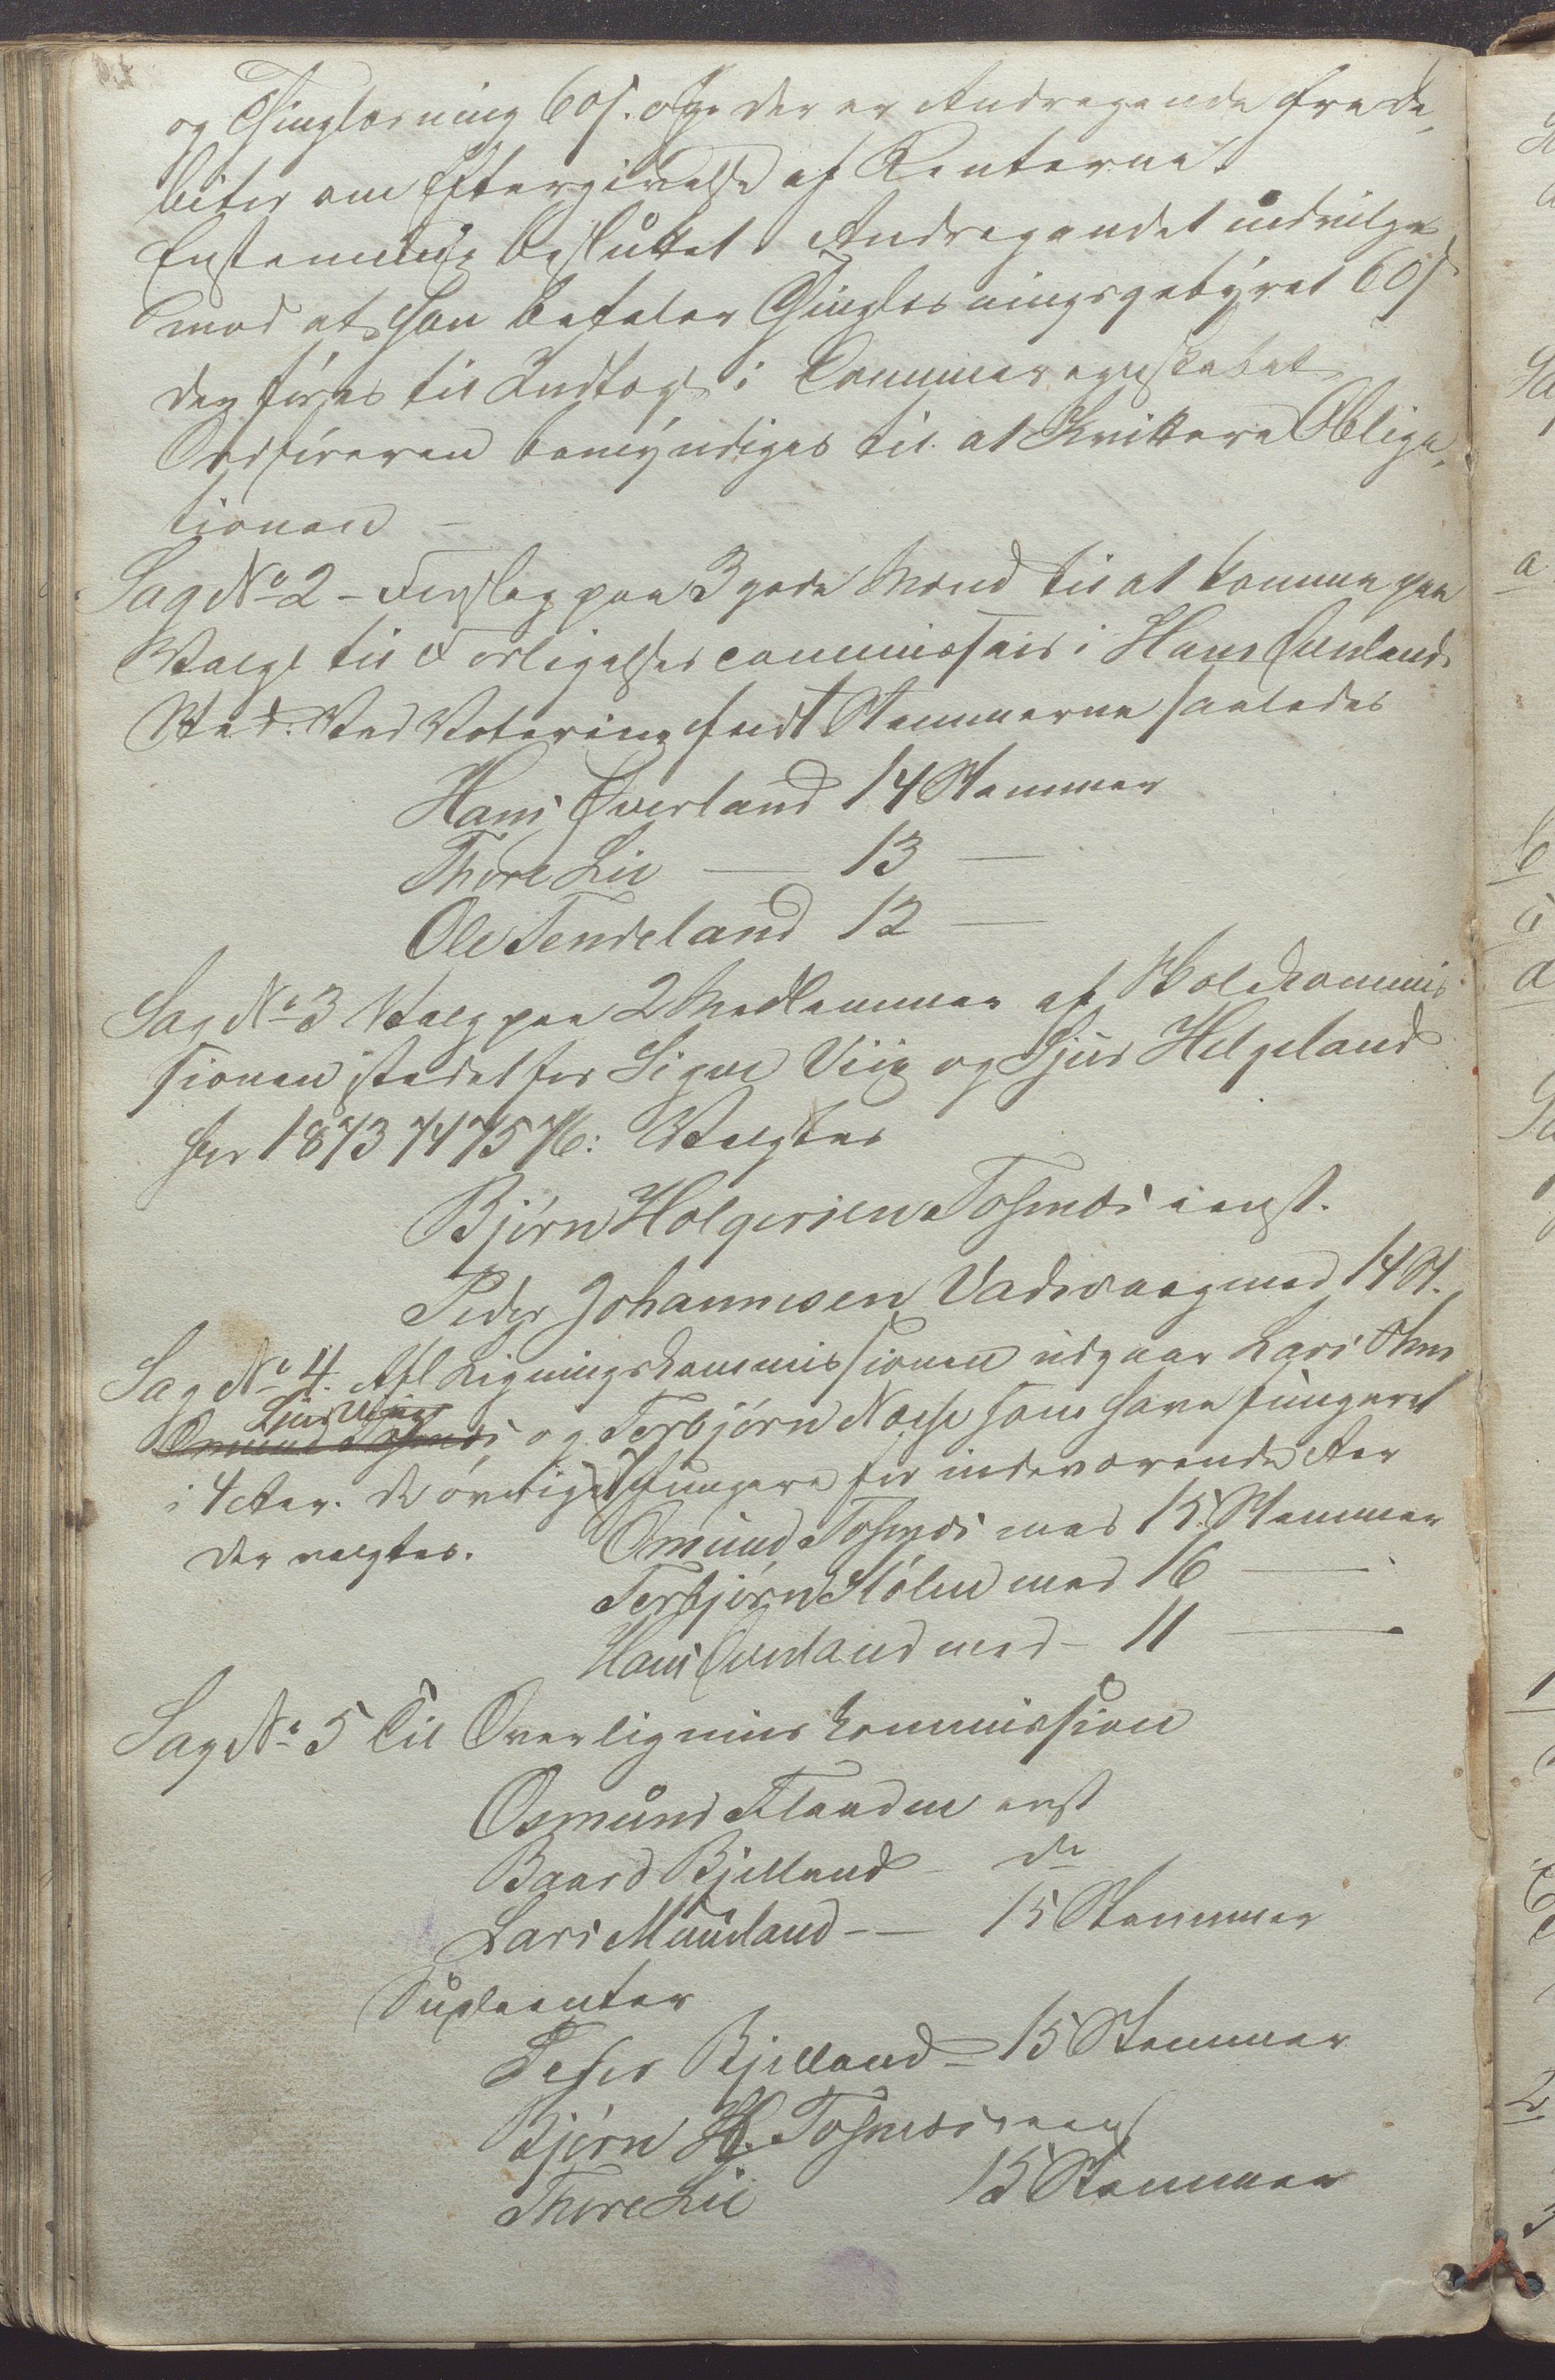 og Thinglæsning 60 s. ogsaa der er Andragende fra De„
bitor om Eftergivelse af Renterne.
Enstemmig besluttet. Andragendet indvilges
mod at han betaler Thinglæsningsgebyret 60 s
der føres til Indtægt i Communeregnskabet
Ordføreren bemyndiges til at Kvittere Obliga„
tionen –
Sag No 2 – Forslag paa 3 gode Mænd til at komme paa
Valg til Forligelsescommissair i Hans Qverlands
Sted. Ved Votering faldt Stemmerne saaledes
Hans Qverland 14 Stemmer
Thore Lie — 13 —
Ole Tendeland 12 —
Sag No 3 Valg paa 2 Medlemmer af Skolekommis
sionen istedet for Sigve Viig og Sjur Helgeland
for 1873 74 75 76: Valgtes
Bjørn Holgersen Tøsmæs eenst.
Peder Johannesen Vadsvaag med 14 St.
Sag No 4. Af Ligningskommissionen udgaar Lars
Sjur Viig
Omund Tøsmæs og Torbjørn Næse som have fungeret
i 4 Aar. De øvrige fungere for indeværende Aar
der valgtes. Omund Tøsmæs med 15 Stemmer
Torbjørn Stølen med 16 —
Hans Qverland med – 11 —
Sag No 5 Til Overlignings kommission
Osmund Flaaden enst
Baard Bjelland – do
Lars Muuland – — 15 Stemmer
Supleanter
Peder Bjelland – 15 Stemmer
Bjørn H. Tøsmæs eenst
Thore Lie 15 Stemmer